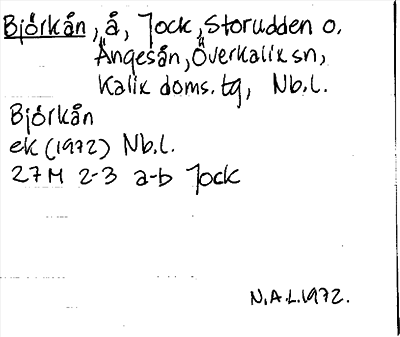 Björkån, å, Jock, Storudden o.
Ängesån, Överkalix sn,
Kalix doms. tg, Nb.l.
Björkån
ek (1972) Nb.l.
27M 2-3 a-b Jock
N.A.L. 1972.